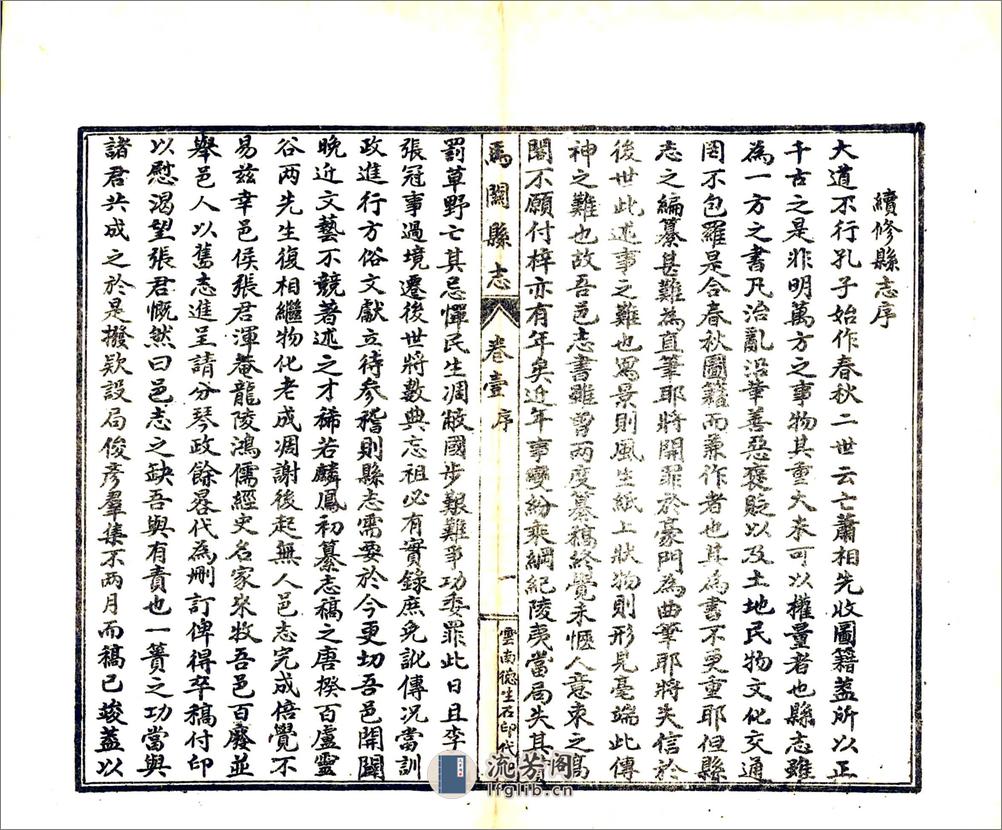 續修縣志序
大道不行孔子始作春秋二世云亡蕭相先收圖籍葢所以正
千古之是非明萬方之事物其重大未可以權量者也縣志雖
為一方之書凡治亂沿革善惡褒貶以及土地民物文化交通
罔不包羅是合春秋圖籍而兼作者也其為書不更重耶但縣
志之編纂甚難為直筆耶將開罪於豪門為曲筆耶將失信於
後世此述事之難也寫景則風生紙上狀物則形見毫端此傳
神之難也故吾邑志書雖曾兩度纂稿終覺未愜人意束之高
閣不願付梓亦有年矣近年事變紛乘綱紀陵夷當局失其
馬關縣志 卷壹 序 一 雲南德生石印代
罰草野亡其忌憚民生凋敝國步艱難事功委罪此日且李
張冠事過境遷後世將數典忘祖必有實錄庶免訛傳况當訓
政進行方俗文獻立待參稽則縣志需要於今更切吾邑開闢
晚近文藝不競著述之才稀若麟鳳初纂志稿之唐揆百盧靈
谷兩先生復相繼物化老成凋謝後起無人邑志完成倍覺不
易茲幸邑侯張君渾菴龍陵鴻儒經史名家來牧吾邑百廢並
舉邑人以舊志進呈請分琴政餘晷代為刪訂俾得卒稿付印
以慰渴望張君慨然曰邑志之缺吾與有責也一簣之功當與
諸君共成之於是撥欵設局俊彥羣集不兩月而稿已竣葢以
流芳阁
lfglib.cn